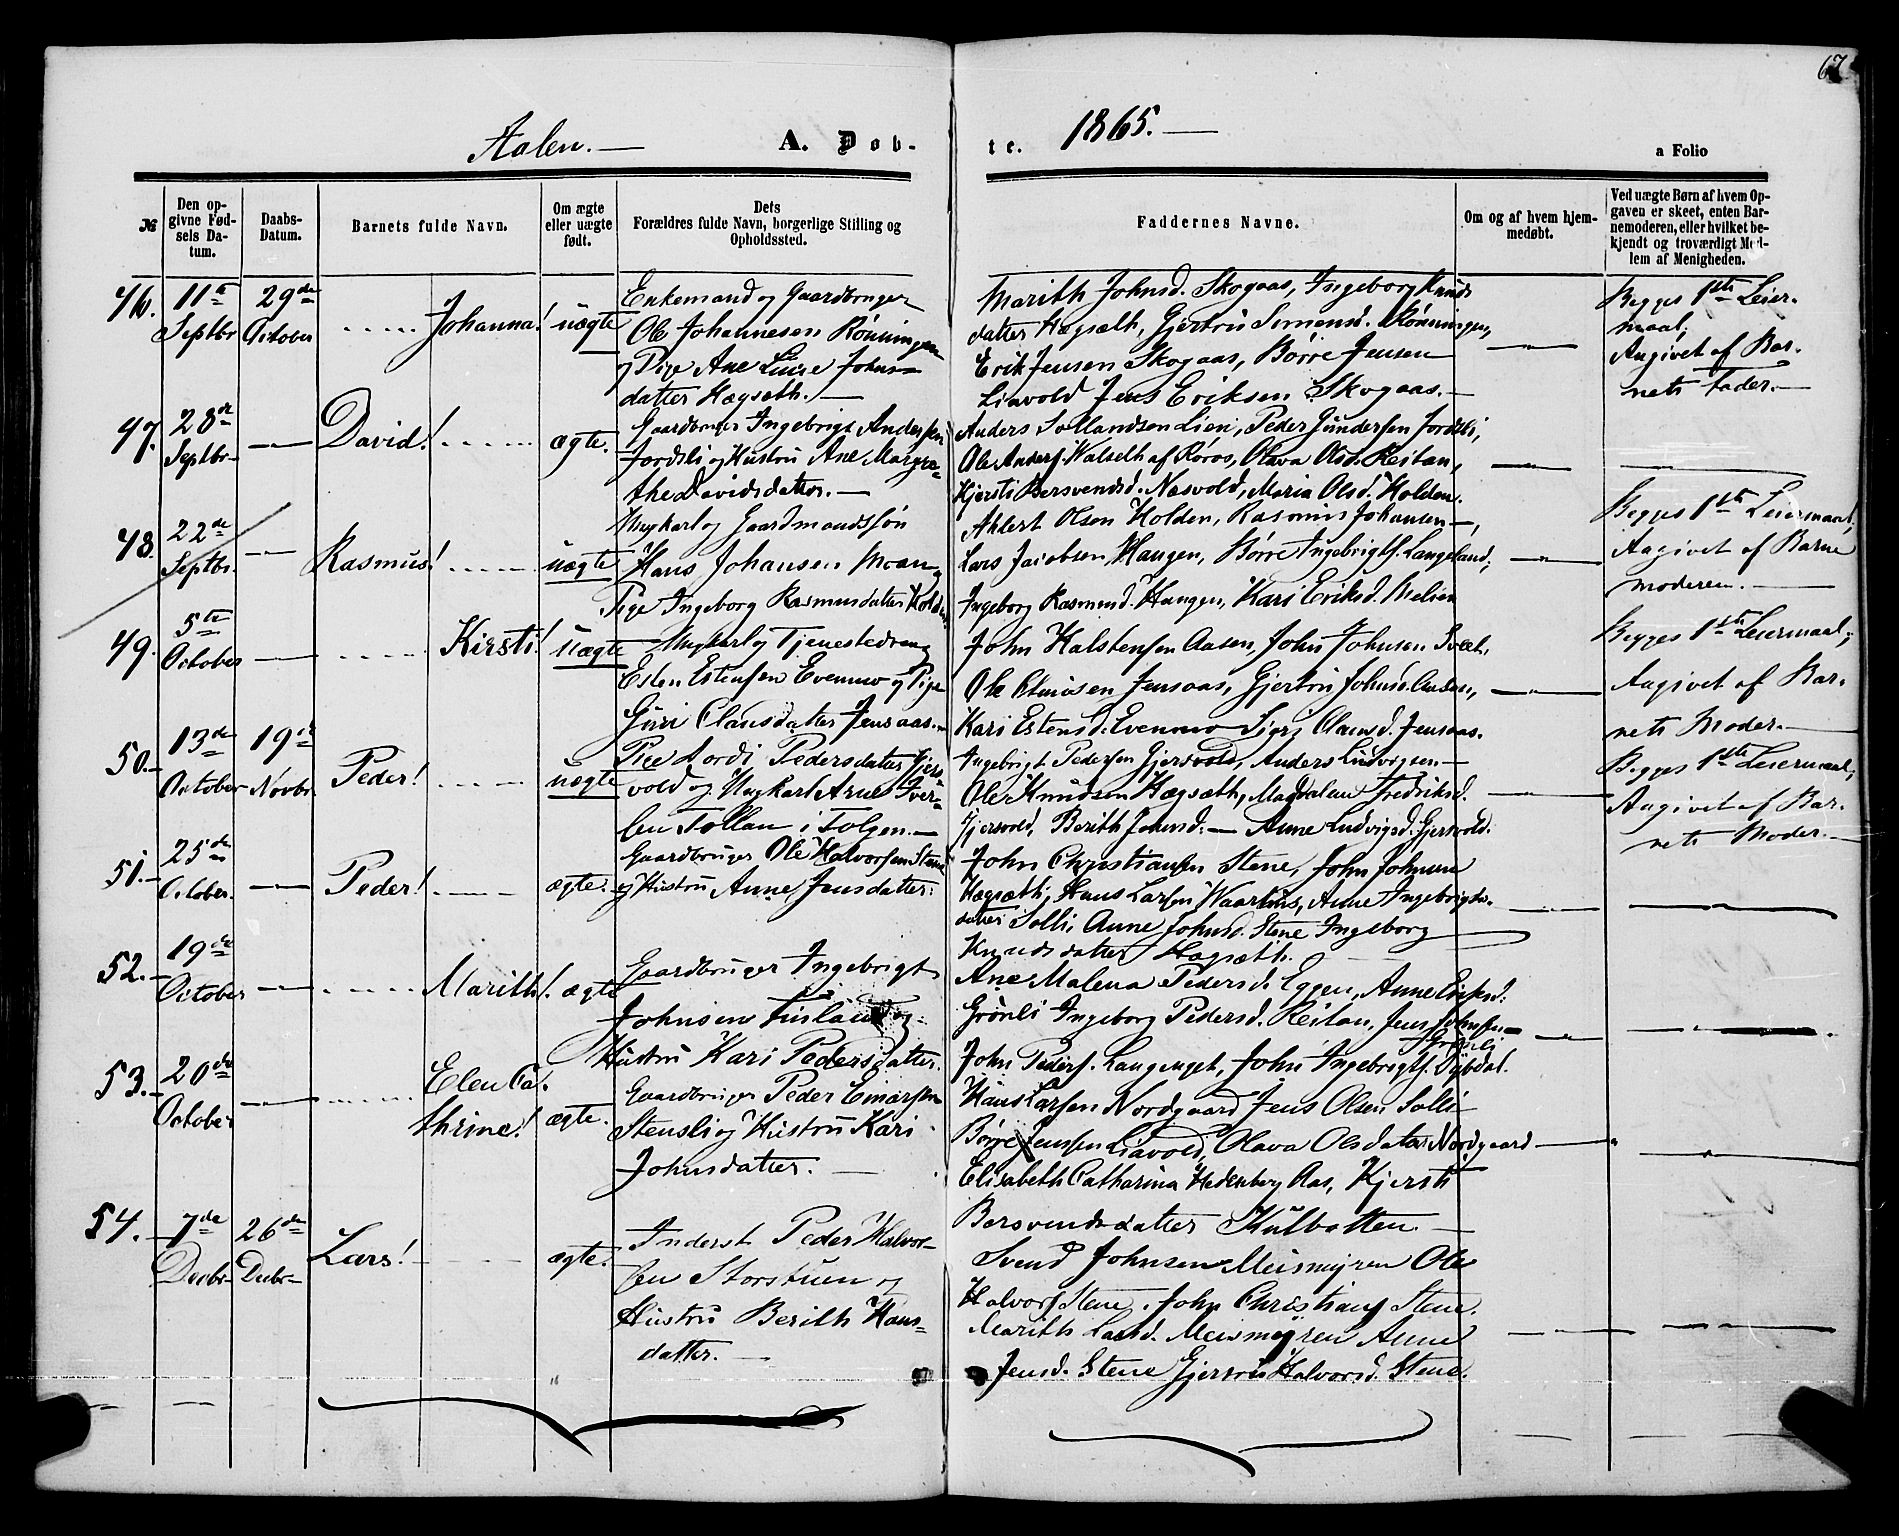 67
Aalen.
A. Døb-
te.
1865.
a Folio
№
Den op-
givne Fød-
sels Da-
tum.
Daabs-
Datum.
Barnets fulde Navn.
Om ægte
eller uægte
født.
Dets
Forældres fulde Navn, borgerlige Stilling og
Opholdssted.
Faddernes Navne.
Om og af hvem hjem-
medøbt.
Ved uægte Børn af hvem Op-
gaven er skeet, enten Bar-
nemoderen, eller hvilket be-
kjendt og troværdigt Med-
lem af Menigheden.
46. 11te Septbr 29de October Johanna! uægte
Enkemand og Gaardbruger
Ole Johannesen Rønningen
og Pige Ane Luise Johns-
datter Hægsæth.
Marith Johnsd. Skogaas, Ingeborg Knuds
datter Hægsæth, Gjertru Simensd. Rønningen,
Erik Jensen Skogaas, Børre Jensen
Liavold Jens Eriksen Skogaas.
Begges 1ste Leier-
maal;
Angivet af Bar-
nets Fader.
47. 28de Septbr David! ægte.
Gaardbruger Ingebrigt Andersen
Jordsli og Hustru Ane Margre-
the Davidsdatter.
Anders Lien, Peder Gundersen Jordsli,
Ole Anders. af Røros, Olava Olsd. Reitan,
Kjersti Bersvendsd. Næsvold, Maria Olsd. Holden.
48. 22de Septbr. Rasmus! uægte
Ungkarl og Gaardmandssøn
Hans Johansen Moan og
Pige Ingeborg Rasmusdatter Holden
Ahlert Olsen Holden, Rasmus Johansen,
Lars Jacobsen Haugen, Børre Ingebrigts. Langeland;
Ingeborg Rasmusd. Haugen, Kari Eriksd. Melien
Begges 1ste Leiermaal;
Angivet af Barne
moderen.
49. 5te October Kirsti! uægte
Ungkarl og Tjenestedreng
Esten Estensen Evenmo og Pige
Guri Clausdatter Jensaas.
John Halstensen Aasen, John Johnsen
Ole Clausen Jensaas, Gjertru Johnsd. Aasen,
Kari Estensd. Evenmo Sigri Clausd. Jensaas.
Begges 1ste Leiermaal;
Angivet af Bar-
nets Moder.
50. 13de October 19de Novbr. Peder! uægte
Pige Pedersdatter Gjers-
vold og Ungkarl Arne Iver-
sen Tollan i Tolgen.
Ingebrigt Pedersen Gjersvold, Anders Ludvigsen
Ole Knudsen Hægsæth, Magdalena Fredriksd.
Gjersvold, Berith Johnsd. Anne Ludvigsd. Gjersvold.
Begges 1ste Leiermaal;
Angivet af Bar-
nets Moder.
51. 25de October. Peder! ægte.
Gaardbruger Ole Halvorsen Stene
og Hustru Anne Jensdatter.
John Christiansen Stene, John Johnsen
Hægsæth, Hans Larsen Anne Ingebrigts-
datter Solli, Anne Johnsd. Stene Ingeborg
Knudsdatter Hægsæth.
52. 19de October Marith! ægte
Gaardbruger Ingebrigt
Johnsen Finland og
Hustru Kari Pedersdatter.
Ane Malena Pedersd. Eggen, Anne Eriksd.
Grønli Ingeborg Pedersd. Reitan, Jens Johnsen
Grønli
John Peders. Langenget, John Ingebrigts. Dybdal.
53. 20de October Elen Ca-
thrine! ægte.
Gaardbruger Peder Einarsen
Stensli og Hustru Kari
Johnsdatter.
Hans Larsen Nordgaard Jens Olsen Solli
Børre Jensen Liavold, Olava Olsdatter Nordgaard
Elisabeth Catharina Hedenberg Aas, Kjersti
Bersvendsdatter Kulbotten.
54. 7de Decbr 26de Decbr Lars! ægte.
Inderst Peder Halvor-
sen Storstuen og
Hustru Berith Hans-
datter.
Svend Johnsen Meismyren Ole
Halvors. Stene, John Christians. Stene.
Marith Larsd. Meismyren Anne
Jensd. Stene Gjertru Halvorsd. Stene.